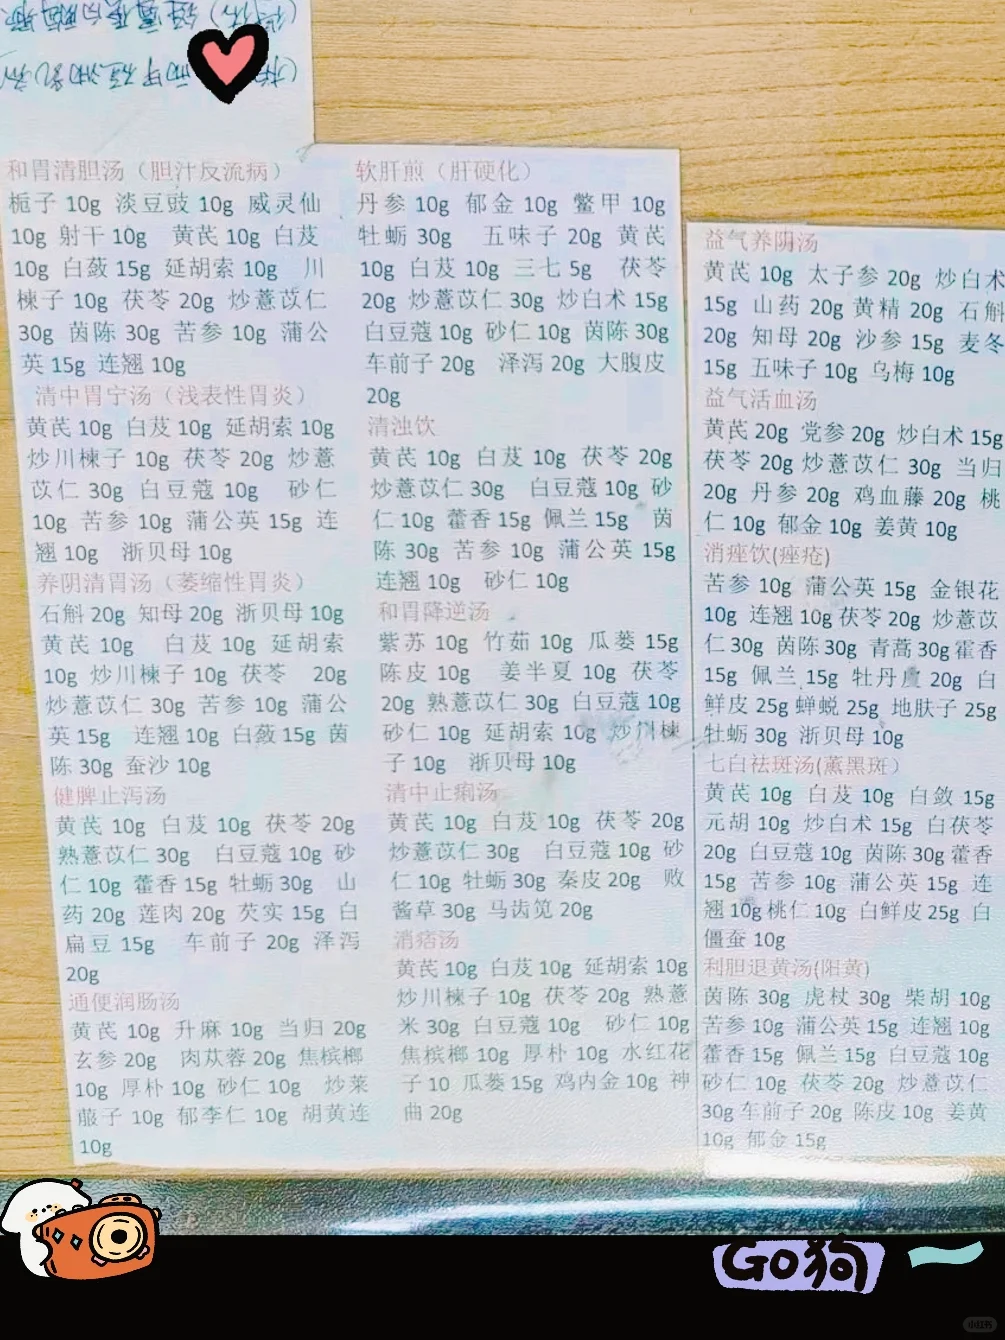 和胃清胆汤（胆汁反流病）
栀子 10g 淡豆豉 10g 威灵仙
10g 射干 10g 黄芪 10g 白芨
10g 白蔹 15g 延胡索 10g 川
楝子 10g 茯苓 20g 炒薏苡仁
30g 茵陈 30g 苦参 10g 蒲公
英 15g 连翘 10g
清中胃宁汤（浅表性胃炎）
黄芪 10g 白芨 10g 延胡索 10g
炒川楝子 10g 茯苓 20g 炒薏
苡仁 30g 白豆蔻 10g 砂仁
10g 苦参 10g 蒲公英 15g 连
翘 10g 浙贝母 10g
养阴清胃汤（萎缩性胃炎）
石斛 20g 知母 20g 浙贝母 10g
黄芪 10g 白芨 10g 延胡索
10g 炒川楝子 10g 茯苓 20g
炒薏苡仁 30g 苦参 10g 蒲公
英 15g 连翘 10g 白蔹 15g 茵
陈 30g 蚕沙 10g
健脾止泻汤
黄芪 10g 白芨 10g 茯苓 20g
熟薏苡仁 30g 白豆蔻 10g 砂
仁 10g 藿香 15g 牡蛎 30g 山
药 20g 莲肉 20g 芡实 15g 白
扁豆 15g 车前子 20g 泽泻
20g
通便润肠汤
黄芪 10g 升麻 10g 当归 20g
玄参 20g 肉苁蓉 20g 焦槟榔
10g 厚朴 10g 砂仁 10g 炒莱
菔子 10g 郁李仁 10g 胡黄连
10g
软肝煎（肝硬化）
丹参 10g 郁金 10g 鳖甲 10g
牡蛎 30g 五味子 20g 黄芪
10g 白芨 10g 三七 5g 茯苓
20g 炒薏苡仁 30g 炒白术 15g
白豆蔻 10g 砂仁 10g 茵陈 30g
车前子 20g 泽泻 20g 大腹皮
20g
清浊饮
黄芪 10g 白芨 10g 茯苓 20g
炒薏苡仁 30g 白豆蔻 10g 砂
仁 10g 藿香 15g 佩兰 15g 茵
陈 30g 苦参 10g 蒲公英 15g
连翘 10g 砂仁 10g
和胃降逆汤
紫苏 10g 竹茹 10g 瓜蒌 15g
陈皮 10g 姜半夏 10g 茯苓
20g 熟薏苡仁 30g 白豆蔻 10g
砂仁 10g 延胡索 10g 炒川楝
子 10g 浙贝母 10g
清中止痢汤
黄芪 10g 白芨 10g 茯苓 20g
炒薏苡仁 30g 白豆蔻 10g 砂
仁 10g 牡蛎 30g 秦皮 20g 败
酱草 30g 马齿笕 20g
消痞汤
黄芪 10g 白芨 10g 延胡索 10g
炒川楝子 10g 茯苓 20g 熟薏
米 30g 白豆蔻 10g 砂仁 10g
焦槟榔 10g 厚朴 10g 水红花
子 10 瓜蒌 15g 鸡内金 10g 神
曲 20g
益气养阴汤
黄芪 10g 太子参 20g 炒白术
15g 山药 20g 黄精 20g 石斛
20g 知母 20g 沙参 15g 麦冬
15g 五味子 10g 乌梅 10g
益气活血汤
黄芪 20g 党参 20g 炒白术 15g
茯苓 20g 炒薏苡仁 30g 当归
20g 丹参 20g 鸡血藤 20g 桃
仁 10g 郁金 10g 姜黄 10g
消痤饮(痤疮)
苦参 10g 蒲公英 15g 金银花
10g 连翘 10g 茯苓 20g 炒薏苡
仁 30g 茵陈 30g 青蒿 30g 霍香
15g 佩兰 15g 牡丹 20g 白
鲜皮 25g 蝉蜕 25g 地肤子 25g
牡蛎 30g 浙贝母 10g
七白祛斑汤(薰黑斑）
黄芪 10g 白芨 10g 白敛 15g
元胡 10g 炒白术 15g 白茯苓
20g 白豆蔻 10g 茵陈 30g 藿香
15g 苦参 10g 蒲公英 15g 连
翘 10g 桃仁 10g 白鲜皮 25g 白
僵蚕 10g
利胆退黄汤(阳黄)
茵陈 30g 虎杖 30g 柴胡 10g
苦参 10g 蒲公英 15g 连翘 10g
藿香 15g 佩兰 15g 白豆蔻 10g
砂仁 10g 茯苓 20g 炒薏苡仁
30g 车前子 20g 陈皮 10g 姜黄
10g 郁金 15g
GO狗
小红书